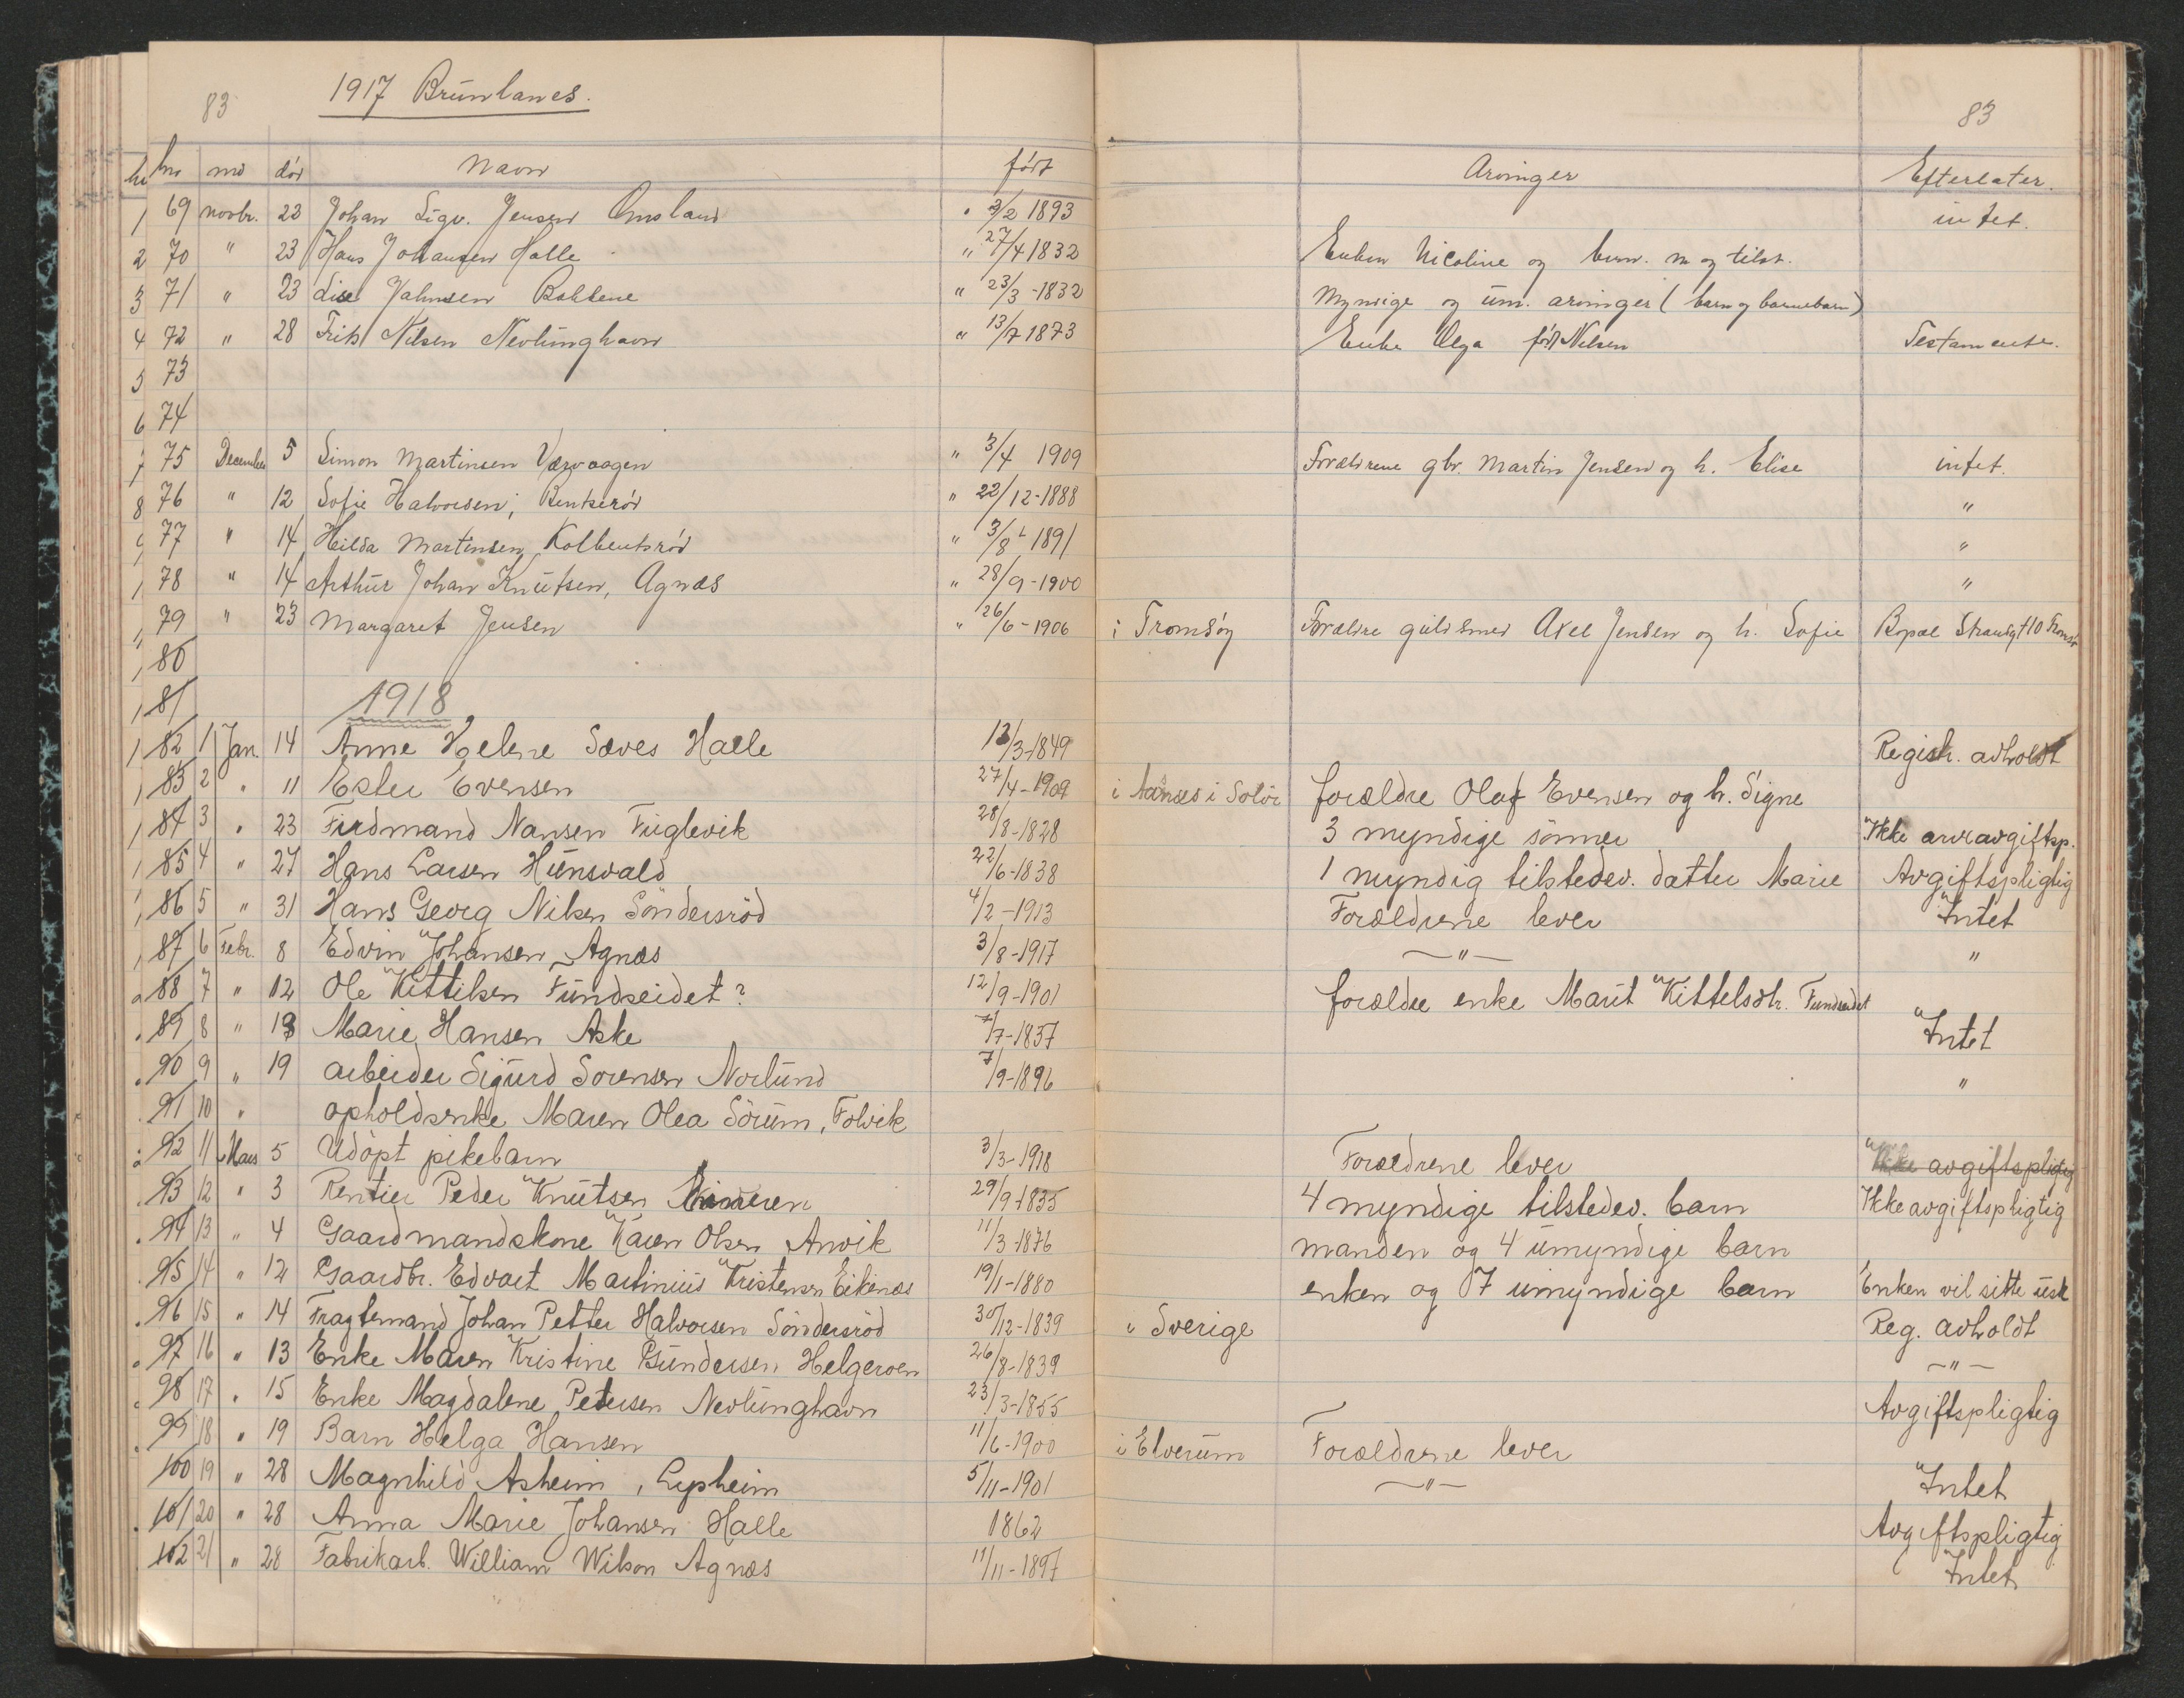 83 1917 Brunlanes. 83
hr no md död Navn født Arvinger Efterlater.
1 69 novbr. 22 Johan Sigv. Jensen Omsland " 2/2 1893 intet.
2 70 " 23 Hans Johansen Halle " 27/4 1832 Enken Nicoline og barn. m og tilst.
3 71 " 23 Lise Jahnsen " 23/3-1832 Myndige og um. arvinger (barn og barnebarn)
4 72 " 28 Frits Nilsen Nevlunghavn " 13/7 1873 Enke Olga født Nilsen Testamente.
5 73
6 74
75 December 5 Simon Martinsen Værvaagen " 3/4 1909 Forældrene gbr. Martin Jensen og h. Elise intet.
8 76 " 12 Sofie Halvorsen, Bentserød " 22/12-1888 "
77 " 14 Hilda Martinsen Kolbentsrød " 3/8 1891 "
1 78 " 14 Arthur Johan Knutsen, Agnæs " 28/9-1900 "
79 " 23 Margaret Jensen " 26/6-1906 i Tromsøy Forældre guldsmed Axel Jensen og h. Sofie Bopæl Strandgt 10 Tromsø
80
81 1918
82 1 Jan. 14 Anne Helene Sæves Halle 13/3-1849 Registr. avholdt
83 2 " 11 Ester Evensen 27/4-1909 i Aanæs i Solör forældre Olaf Evensen og h. Signe
84 3 " 23 Ferdmand Nansen Fuglevik 28/8-1828 3 myndige sönner Ikke arveavgiftsp.
85 4 " 27 Hans Larsen Hunsvald 22/6-1838 1 myndig tilstedev. datter Marie Avgiftspligtig
86 5 " 31 Hans Georg Nilsen Söndersröd 4/2-1913 Forældrene lever Intet
87 6 Febr. 8 Edvin Johansen, Agnæs 3/8-1917 — " — "
88 7 " 12 Ole Kittilsen Fundseidet? 12/9-1901 forældre enke Marit Kittelsdtr. Fundseidet
89 8 " 13 Marie Hansen Aske 7/7-1837 Intet
90 9 " 19 arbeider Sigurd Sorensen Norlund 7/9-1896 "
91 10 " opholdsenke Maren Olea Sörum, Folvik
92 11 Mars 5 Udöpt pikebarn 3/3-1918 Forældrene lever Ikke avgiftspligtig
93 12 " 3 Rentier Peder Knutsen 29/9-1835 4 myndige tilstedev. barn Ikke avgiftspligtig
94 13 " 4 Gaardmandskone Karen Olsen Anvik 11/3-1876 manden og 4 umyndige barn
95 14 " 12 Gaardbr. Edvart Martinius Kristensen Eikenæs 19/1-1880 enken og 7 umyndige barn Enken vil sitte usk
96 15 " 14 Fragtemand Johan Petter Halvorsen Söndersröd 30/12-1839 i Sverige Reg. avholdt
97 16 " 13 Enke Maren Kristine Gundersen Helgeroen 26/8-1839 — " —
98 17 " 15 Enke Magdalene Petersen Nevlunghavn 23/3-1855 Avgiftspligtig
99 18 " 19 Barn Helga Hansen 11/6-1900 i Elverum Forældrene lever
100 19 " 28 Magnhild Asheim, Lysheim 5/11-1901 — " — Intet
101 20 " 28 Anna Marie Johansen Halle 1862 Avgiftspligtig
102 21 " 28 Fabrikarb. William Wilson Agnæs 11/11-1897 Intet